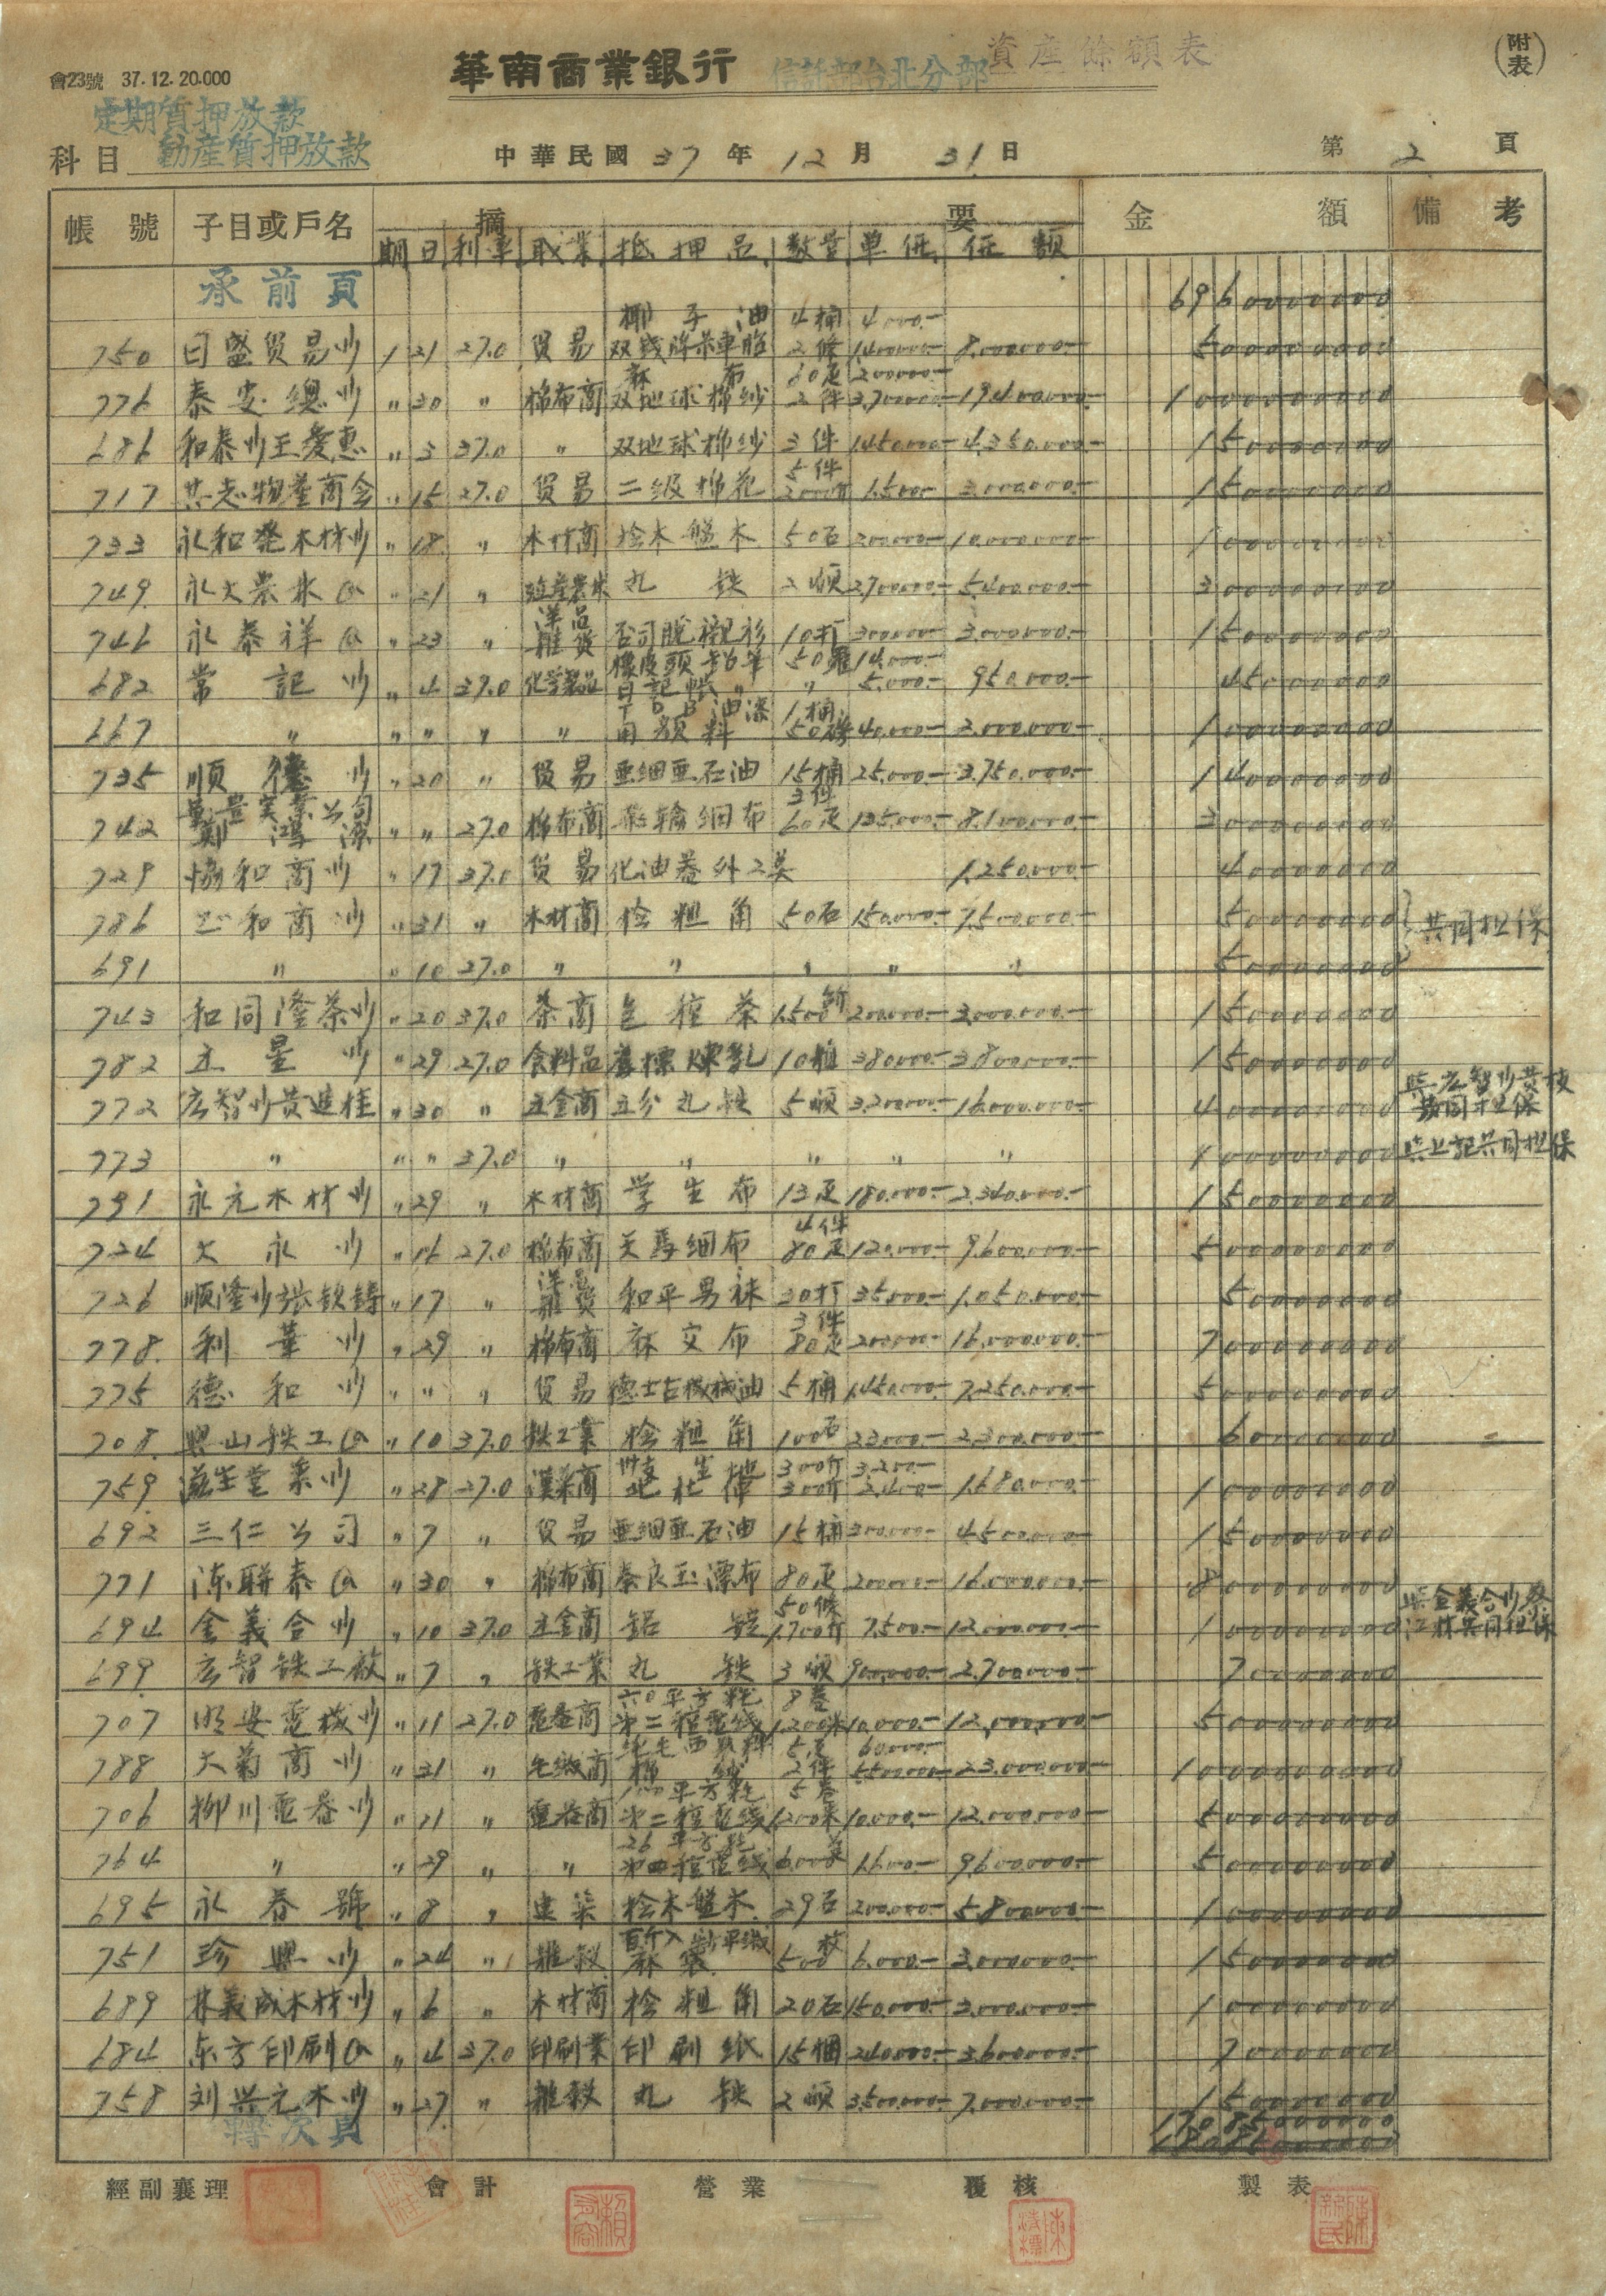 會23號 37.12.20.000
華南商業銀行 信託部台北分部 資產餘額表
(附表)
定期質押放款
科目 動產質押放款
中華民國 37 年 12 月 31 日
第 2 頁
帳號 子目或戶名 摘要 金額 備考
期日 利率 職業 抵押品 數量 單価 価額
承前頁 696000000.00
椰子油 4桶 4000.-
750 日盛貿易行 1 21 27.0 貿易 双錢牌車胎 2條 1400000.- 8,000,000.- 50000000
麻布 60疋 200000.-
776 泰安總行 〃 30 〃 棉布商 双地球棉紗 2件 3,700,000.- 19400,000.- 1000000000
686 和泰行王愛惠 〃 3 37.0 〃 双地球棉紗 3件 1450,000.- 4,350,000.- 150000000
5件
717 共志物產商会 〃 15 27.0 貿易 二級棉花 2000斤 1,500.- 3,000,000.- 150000000
733 永和発木材行 〃 18 〃 木材商 桧木盤木 50石 200,000.- 10,000,000.- 100000000
749 永大農林公 〃 21 〃 丸鉄 2噸 2,700,000.- 5,400,000.- 300000000
洋品
746 永泰祥公 〃 23 〃 雜貨 否司脫襯衫 10打 300000.- 3,000,000.- 150000000
橡皮頭鉛筆 50羅 14,000.-
682 常記行 〃 4 37.0 化学製品 日記帳〃 〃 5,000.- 950,000.- 45000000
油漆 1桶
667 〃 〃 〃 〃 〃 顏料 50磅 40,000.- 2,000,000.- 100000000
735 順德行 〃 20 〃 貿易 亜細亜石油 15桶 25,000.- 3,750,000.- 140000000
豊実業公司 3件
742 鄭鴻源 〃 〃 27.0 棉布商 細布 60疋 135,000.- 8,100,000.- 300000000
729 協和商行 〃 17 37.0 貿易 化油器外2美 1,250,000.- 40000000
786 正和商行 〃 31 〃 木材商 桧粗角 50石 150,000.- 7,500,000.- 50000000 共同担保
691 〃 〃 10 27.0 〃 〃 〃 〃 〃 50000000
743 和同隆茶行 〃 20 37.0 茶商 包種茶 1,500斤 200000.- 3,000,000.- 150000000
782 主星行 〃 29 27.0 食料品 鷹標煉乳 10箱 380000.- 3,800,000.- 150000000
772 宏智行黄進桂 〃 30 〃 五金商 五分丸鉄 5噸 3,200,000.- 16,000,000.- 400000000 與宏智行黄枝
共同担保
773 〃 〃 〃 37.0 〃 〃 〃 〃 〃 1000000000 與上記共同担保
791 永元木材行 〃 29 〃 木材商 学生布 13疋 180,000.- 2,340,000.- 150000000
4件
724 大永行 〃 16 27.0 棉布商 天馬細布 80疋 120,000.- 9,600,000.- 500000000
洋品
726 順隆行張欽鋳 〃 17 〃 雜貨 和平男袜 30打 35,000.- 1,050,000.- 50000000
3件
778 利華行 〃 29 〃 棉布商 麻交布 80疋 200,000.- 16,000,000.- 700000000
775 德和行 〃 〃 〃 貿易 德士古機械油 5桶 1,450,000.- 7,250,000.- 500000000
708 興山鉄工公 〃 10 37.0 鉄工業 桧粗角 100石 23000.- 2,300,000.- 60000000
生地 300斤 3,200.-
759 滋生堂薬行 〃 28 27.0 漢薬商 杜仲 300斤 2,400.- 1,680,000.- 100000000
692 三仁公司 〃 7 〃 貿易 亜細亜石油 15桶 300,000.- 4,500,000.- 150000000
771 陳聯泰公 〃 30 〃 棉布商 奈良玉漂布 80疋 200,000.- 16,000,000.- 800000000
50條 與金義合行蔡
694 金義合行 〃 10 37.0 五金商 鋁錠 1,700斤 7,500.- 12,000,000.- 100000000 江林共同担保
699 宏智鉄工廠 〃 7 〃 鉄工業 丸鉄 3噸 900,000.- 2,700,000.- 70000000
六0平方粍 8巻
707 明安電機行 〃 11 27.0 電器商 第二種電線 1,200米 10,000.- 12,000,000.- 500000000
5疋 60,000.-
788 大菊商行 〃 31 〃 毛織商 棉紗 2件 5,500,000.- 23,000,000.- 1000000000
100平方粍 5巻
706 柳川電器行 〃 11 〃 電器商 第二種電線 1200米 10,000.- 12,000,000.- 500000000
26平方粍
764 〃 〃 29 〃 〃 第四種電線 6,000米 1,600.- 9,600,000.- 500000000
695 永春號 〃 8 〃 建築 桧木盤木 29石 200,000.- 5,800,000.- 100000000
百斤入 平織
751 珍興行 〃 24 〃 雜穀 麻袋 500枚 6,000.- 3,000,000.- 150000000
689 林義成木材行 〃 6 〃 木材商 桧粗角 20石 150,000.- 3,000,000.- 100000000
684 東方印刷公 〃 4 37.0 印刷業 印刷紙 15梱 240,000.- 3,600,000.- 70000000
758 刘興元木行 〃 27 〃 雜穀 丸鉄 2噸 3,500,000.- 7,000,000.- 150000000
轉次頁
經副襄理 會計 營業 覆核 製表